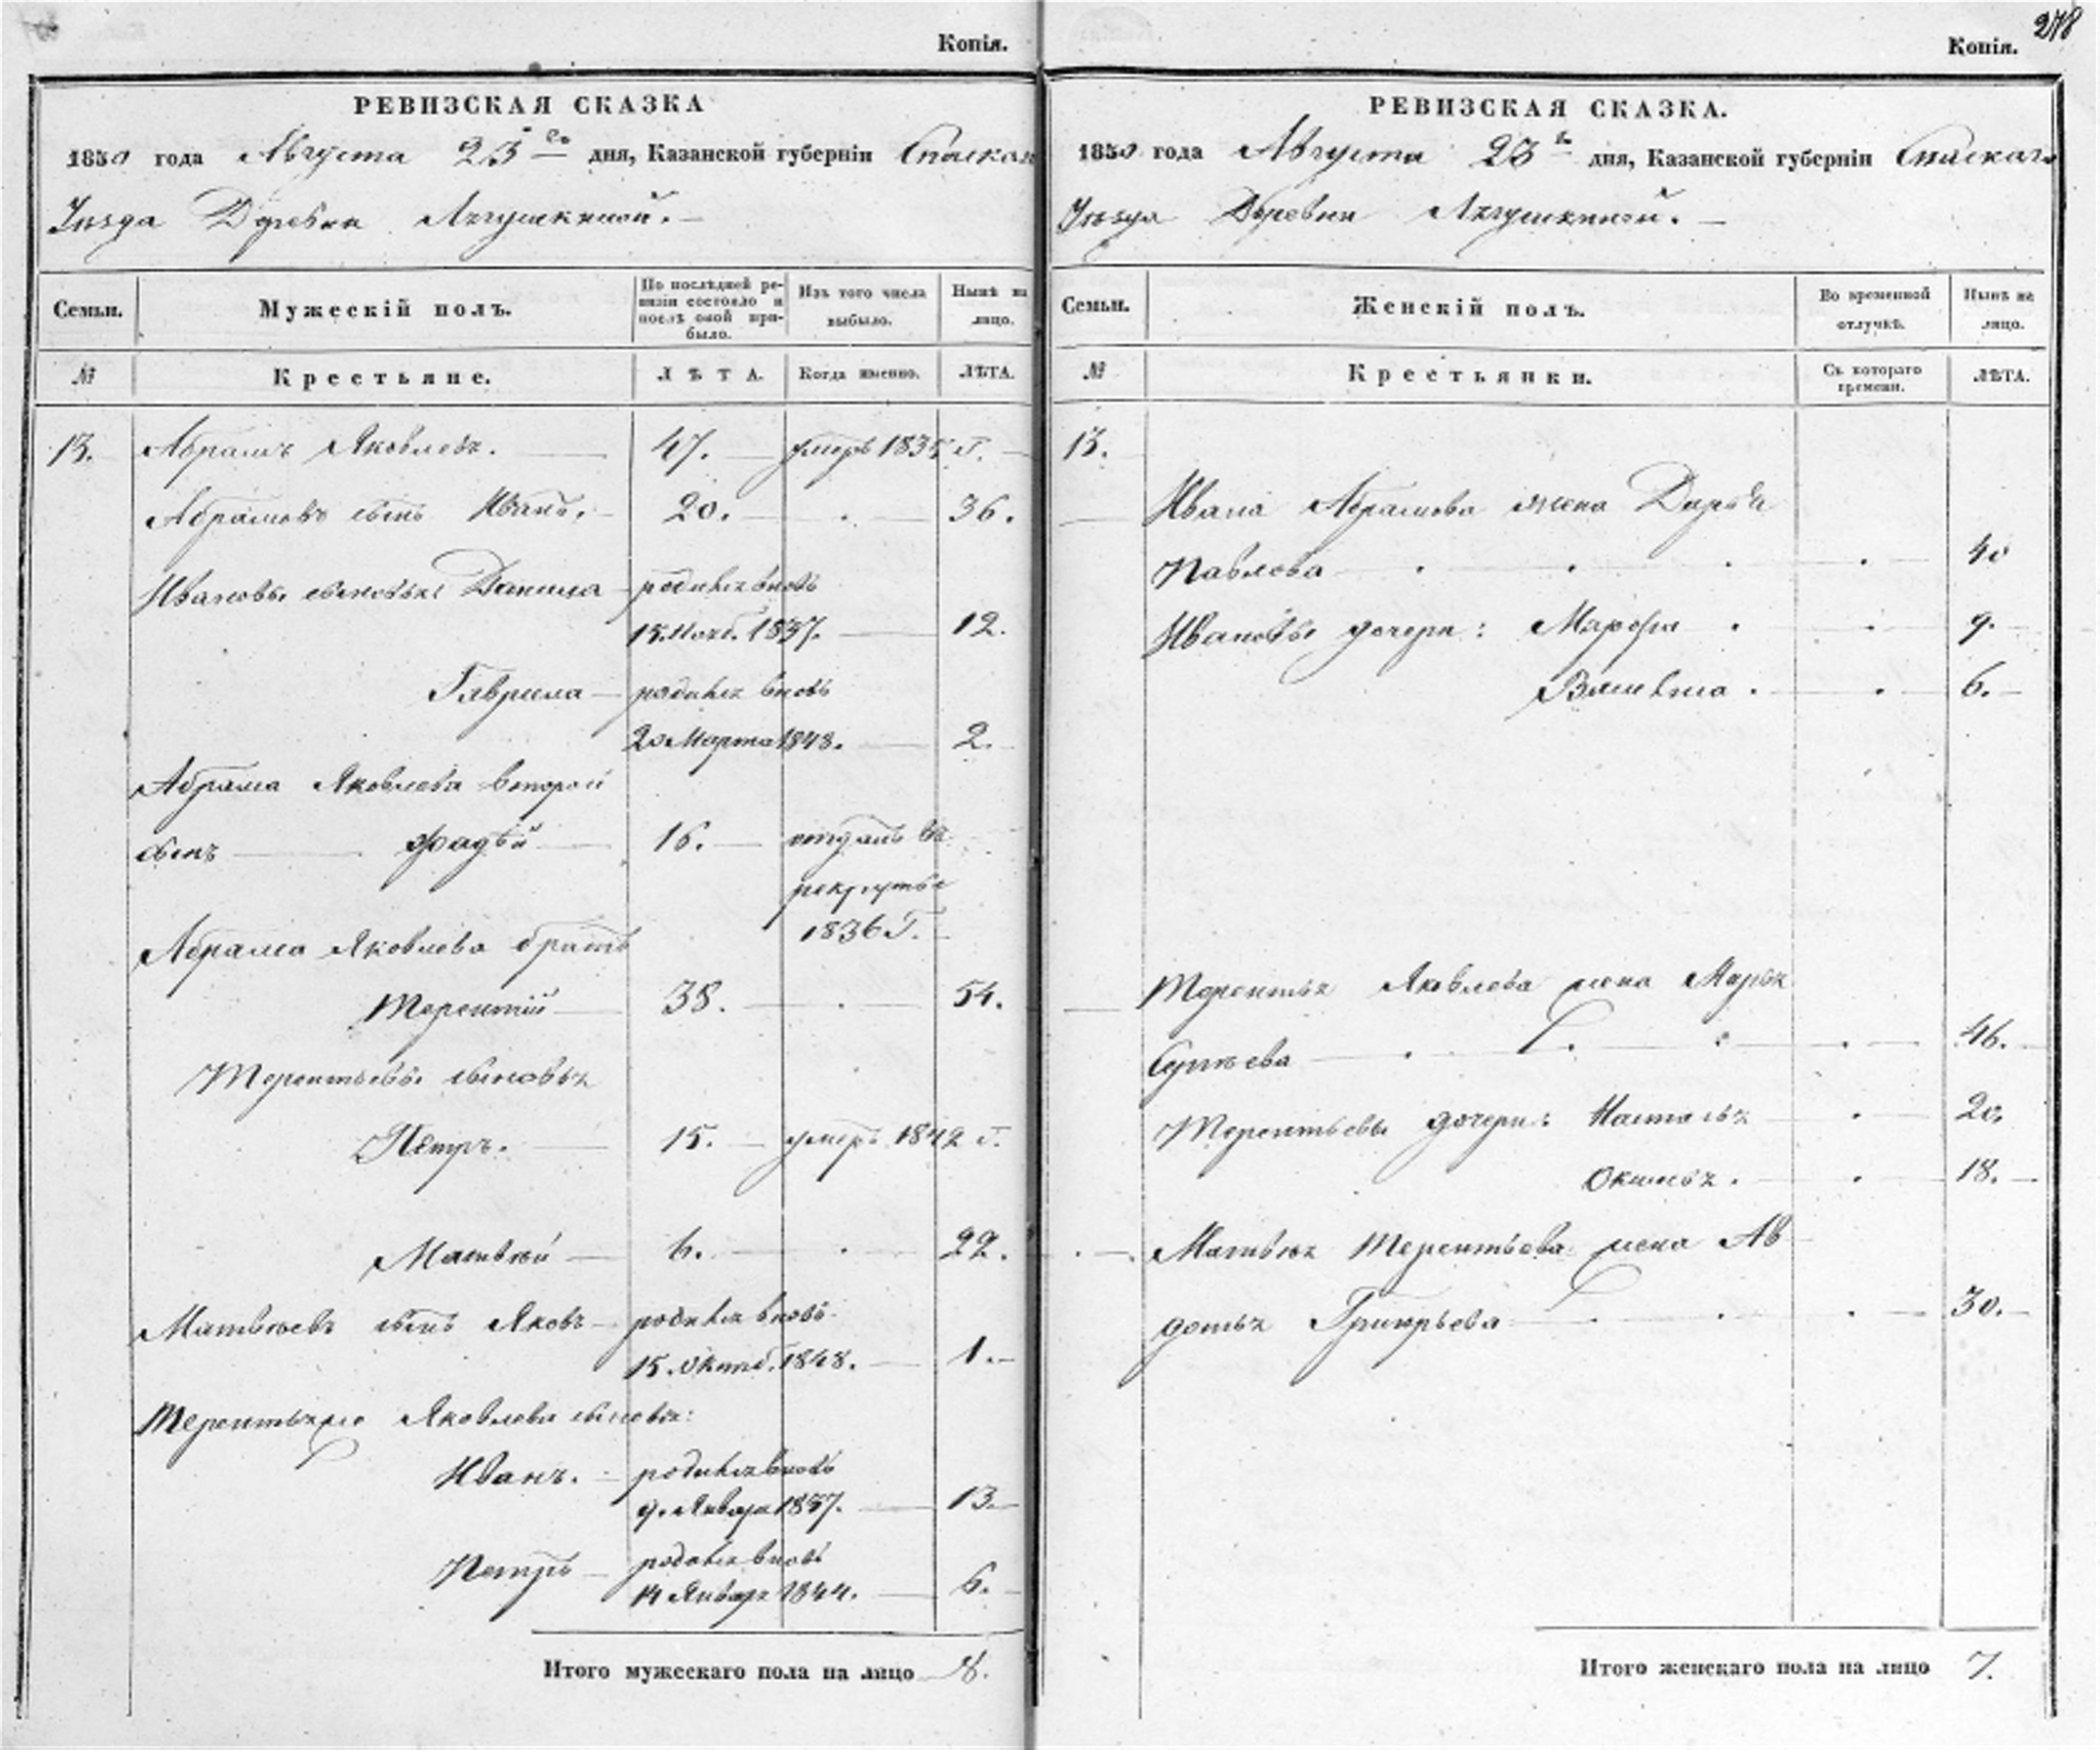 Копія.
РЕВИЗСКАЯ СКАЗКА
1850 года Августа 23го дня, Казанской губерніи Спаскаго
Уѣзда Деревни Лягушкиной.
Семьи.
Мужескій полъ.
По послѣдней ре-
визіи состояло и
послѣ оной при-
было.
Изъ того числа
выбыло.
Нынѣ на
лицо.
№
Крестьяне.
ЛѢТА.
Когда именно.
ЛѢТА.
13. Абрамъ Яковлевъ. 47. умеръ 1835 г.
Абрамовъ сынъ Иванъ. 20. 36.
Ивановы сыновья: Данила родился вновь
15. Нояб. 1837. 12.
Гаврила родился вновь
20 Марта 1848. 2.
Абрама Яковлева второй
сынъ Фадѣй 16. отданъ въ
рекруты
1836 г.
Абрама Яковлева братъ
Терентій 38. 54.
Терентьевы сыновья
Петръ. 15. умеръ 1842 г.
Матвѣй 6. 22.
Матвѣевъ сынъ Яковъ родился вновь
15. Октяб. 1848. 1.
Терентья Яковлева сыновья:
Иванъ. родился вновь
9. Января 1837. 13.
Петръ родился вновь
14 Января 1844. 6.
Итого мужескаго пола на лицо 8.
278
Копія.
РЕВИЗСКАЯ СКАЗКА.
1850 года Августа 23го дня, Казанской губерніи Спаскаго
Уѣзда Деревни Лягушкиной.
Семьи.
Женскій полъ.
Во временной
отлучкѣ.
Нынѣ на
лицо.
№
Крестьянки.
Съ котораго
времени.
ЛѢТА.
13.
Ивана Абрамова жена Дарья
Павлова 40
Ивановы дочери: Марфа 9.
6.
Терентья Яковлева жена Марья
Сергѣева 46.
Терентьевы дочери: Настасья 20.
Окинья. 18.
Матвѣя Терентьева жена Ав
дотья Григорьева 30.
Итого женскаго пола на лицо 7.